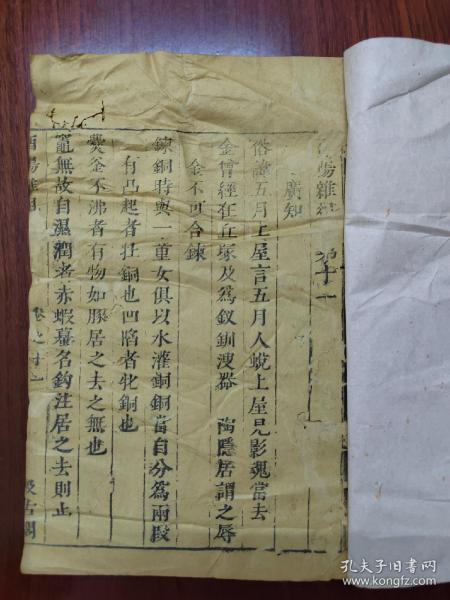 陽雜
十一
廣知
俗諱五月上屋言五月人蛻上屋見影魂當去
金曾經在丘塚及爲釵釧溲器 陶隱居謂之辱
金不可合鍊
鍊銅時與一童女俱以水灌銅銅當自分爲兩段
有凸起者牡銅也凹陷者牝銅也
爨釜不沸者有物如豚居之去之無也
竈無故自濕潤者赤蝦蟇名鈎注居之去則止
陽雜
卷之十一
汲古閣
孔夫子旧书网
www.kongfz.com